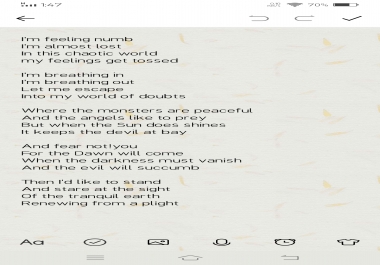 1:47
70%
I'm feeling numb
I'm almost lost
In this chaotic world
my feelings get tossed
I'm breathing in
I'm breathing out
Let me escape
Into my world of doubts
Where the monsters are peaceful
And the angels like to prey
But when the Sun does shines
It keeps the devil at bay
And fear not!you
For the Dawn will come
When the darkness must vanish
And the evil will succumb
Then I'd like to stand
And stare at the sight
Of the tranquil earth
Renewing from a plight
Aa